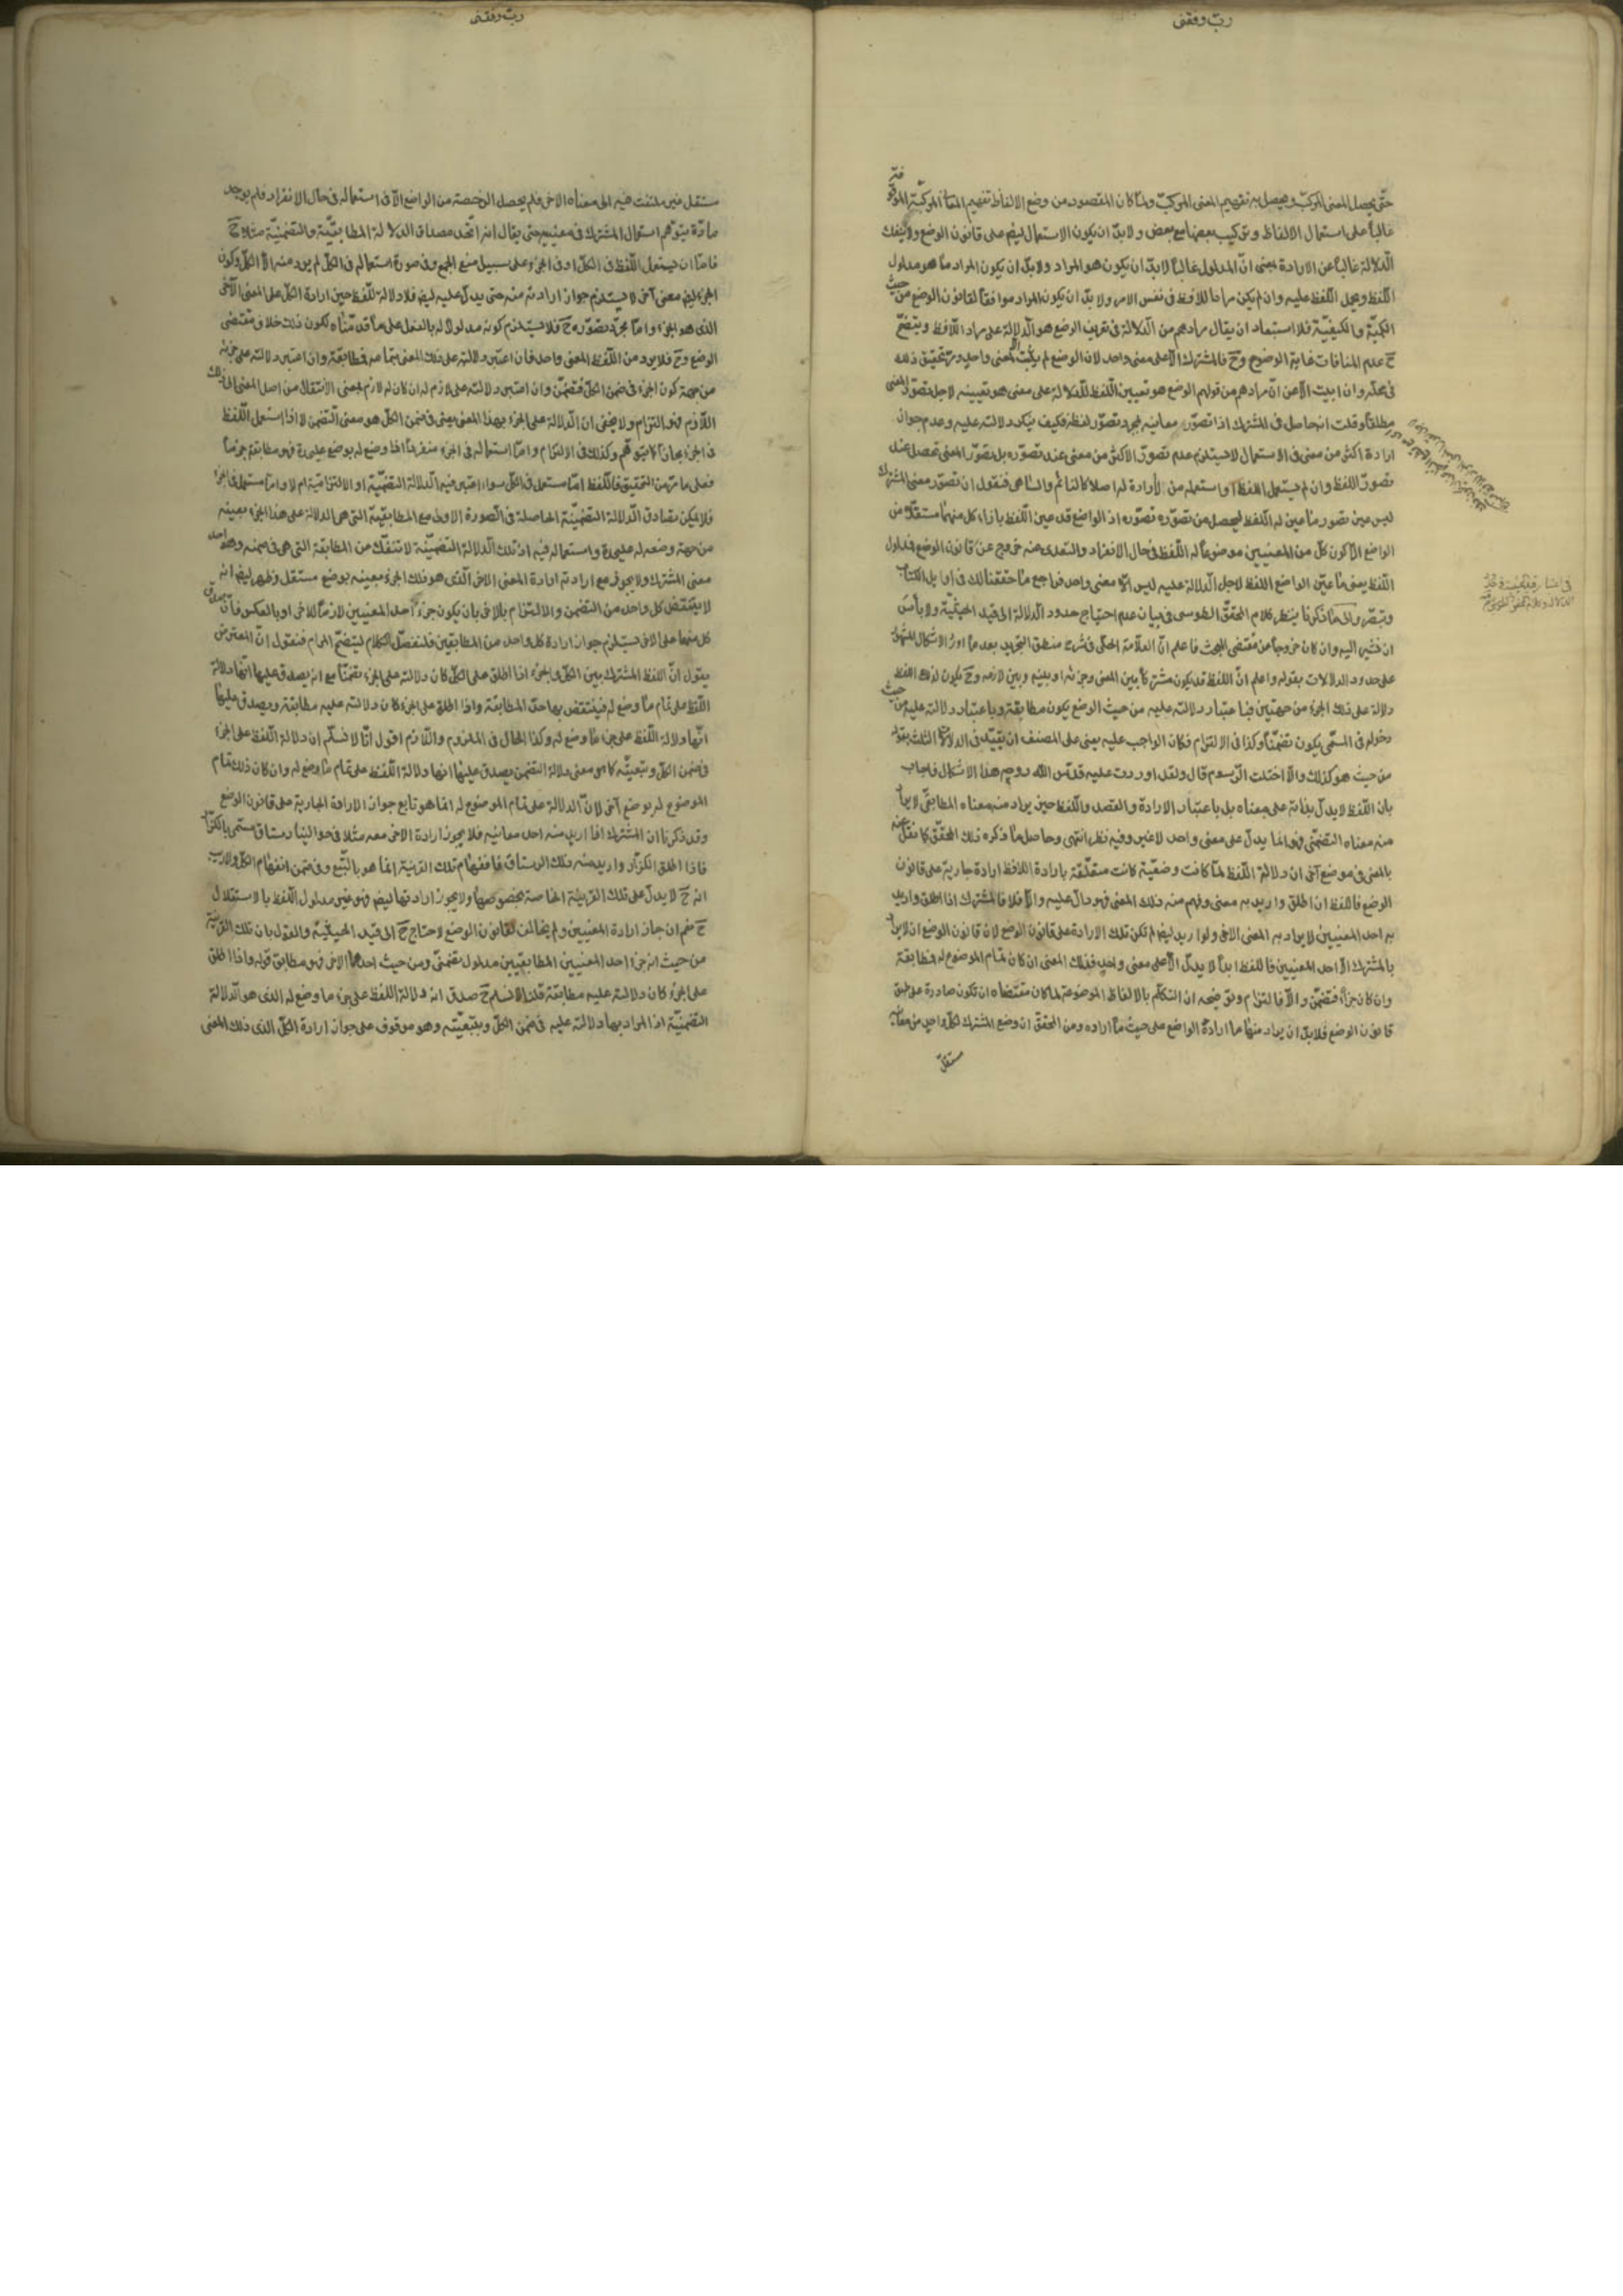 ربّ وفقنی
حتّى يحصل المعنى المركّب ويحصل به تفهيم المعنى المركّب ولمّا كان المقصود من وضع الالفاظ تفهيم المعانى المركّبة الموقوفة
غالباً على استعمال الالفاظ وتركيب بعضها مع بعض ولا بدّ ان يكون الاستعمال ايضا على قانون الوضع ولا ينفك
الدّلالة غالباً عن الارادة بمعنى انّ المدلول غالباً لا بدّ ان يكون هو المراد ولا بدّ ان يكون المراد ما هو مدلول
اللّفظ ويحمل اللّفظ عليه وان لم يكن مراداً للافظ فى نفس الامر ولا بدّ ان يكون المراد موافقاً لقانون الوضع من حيث
الكميّة والكيفيّة فلا استبعاد ان يقال مرادهم من الدّلالة فى تعريف الوضع هو الدّلالة على مراد اللّافظ ويتضح
ح عدم المنافات غاية الوضوح وح فالمشترك لا يدل الا على معنى واحد لان الوضع لم يثبت الا لمعنى واحد ومرّ تحقيق ذلك
فى محلّه وان ابيت الّا عن انّ مرادهم من قولهم الوضع هو تعيين اللّفظ للدّلالة على معنى هو تعيينه لاجل تصوّر المعنى
مطلقاً وقلت انه حاصل فى المشترك اذا تصوّر معانيه بمجرد تصوّر لفظه فكيف ينكر دلالته عليه وعدم جواز
ارادة اكثر من معنى فى الاستعمال لا يستلزم عدم تصوّر الاكثر من معنى عند تصوّره بل تصوّر المعنى يحصل عند
تصوّر اللفظ وان لم يستعمل اللفظ او استعمله من لا ارادة له اصلا كالنائم والساهى فنقول ان تصوّر معنى المشترك
ليس عين تصور ما عين له اللّفظ ليحصل من تصوّره تصوّره اذ الواضع قد عين اللّفظ بازاء كل منهما مستقلّا من
الواضع الا كون كلّ من المعنيين موضوعاً له اللّفظ فى حال الانفراد والتعدى عنه خروج عن قانون الوضع فمدلول
اللّفظ يعنى ما عيّن الواضع اللفظ لاجل الدّلالة عليه ليس الّا معنى واحد فراجع ما حققنا لك فى اوايل الكتاب
وتبصّر والى ما ذكرنا ينظر كلام المحقّق الطوسى فى بيان عدم احتياج حدود الدّلالة الى قيد الحيثيّة ولا بأس
ان نشير اليه وان كان خروجاً عن مقتضى البحث فاعلم انّ العلّامة الحلّى فى شرح منطق التجريد بعد ما اورد الاشكال المشهور
على حدود الدلالات بقوله واعلم انّ اللّفظ قد يكون مشتركاً بين المعنى وجزئه او بينه وبين لازمه وح يكون لذلك اللفظ
دلالة على ذلك الجزء من جهتين فباعتبار دلالته عليه من حيث الوضع يكون مطابقة وباعتبار دلالته عليه من حيث
دخوله فى المسمّى يكون تضمّناً وكذا فى الالتزام فكان الواجب عليه يعنى على المصنف ان يقيّد فى الدلالات الثلث بقوله
من حيث هو كذلك والّا اختلت الرّسوم قال ولقد اوردت عليه قدّس اللّه روحه هذا الاشكال فاجاب
بان اللّفظ لا يدلّ بذاته على معناه بل باعتبار الارادة والقصد واللّفظ حين يراد منه معناه المطابقىّ لا يراد
منه معناه التضمّنى فهو انما يدلّ على معنى واحد لا غير وفيه نظر انتهى وحاصل ما ذكره ذلك المحقّق كما نقل عنه
بالمعنى فى موضع آخر ان دلالة اللّفظ لمّا كانت وضعيّة كانت متعلّقة بارادة اللّافظ ارادة جارية على قانون
الوضع فاللفظ ان اطلق واريد به معنى وفهم منه ذلك المعنى فهو دالّ عليه والّا فلا فالمشترك اذا اطلق واريد
به احد المعنيين لا يراد به المعنى الاخر ولو اريد ايضا لم تكن تلك الارادة على قانون الوضع لان قانون الوضع ان لا يراد
بالمشترك الّا احد المعنيين فاللفظ ابداً لا يدلّ الّا على معنى واحد فذلك المعنى ان كان تمام الموضوع له فمطابقة
وان كان جزأه فتضمّن والّا فالتزام وتوضيحه ان التكلّم بالالفاظ الموضوعة لما كان مقتضاه ان تكون صادرة على طبق
قانون الوضع فلا بدّ ان يراد منها ما اراده الواضع على حيث ما اراده ومن المحقق ان وضع المشترك لكلّ واحد من معانيه
مستقلّ
ربّ وفقنی
مستقل غير ملتفت فيه الى معناه الاخر فلم يحصل الرخصة من الواضع الّا فى استعماله فى حال الانفراد فلم يوجد
مادّة يتوهّم استعمال المشترك فى معنييه حتى يقال انه اتّحد مصداق الدلالة المطابقيّة والتضمنيّة مثلا وح
فامّا ان يستعمل اللّفظ فى الكلّ او فى الجزء على سبيل منع الجمع وفى صورة استعماله فى الكلّ لم يرد منه الّا الكلّ وكون
الجزء ايضا معنى آخر لا يستلزم جواز ارادته منه حتى يدلّ عليه ايضا فلا دلالة للّفظ حين ارادة الكلّ على المعنى الاخر
الذى هو الجزء وامّا مجرّد تصوّره ح فلا يستلزم كونه مدلولا له بالفعل على ما قدّمناه لكون ذلك خلاف مقتضى
الوضع وح فلا يرد من اللّفظ المعنى واحد فان اعتبر دلالته على ذلك المعنى بتمامه فمطابقة وان اعتبر دلالته على جزئه
من جهة كون الجزء فى ضمن الكلّ فتضمّن وان اعتبر دلالته على لازم له ان كان له لازم بمعنى الانتقال من اصل المعنى الى ذلك
اللّازم فهو التزام ولا يخفى ان الدّلالة على الجزء بهذا المعنى يعنى فى ضمن الكلّ هو معنى التّضمن لا اذا استعمل اللّفظ
فى الجزء مجازاً كما يتوهّم وكذلك فى الالتزام وامّا استعماله فى الجزء منفرداً اذا وضع له بوضع عليحدة فهو مطابقة جزماً
فعلى ما مرّ من التحقيق فاللّفظ امّا مستعمل فى الكلّ سواء اعتبر فيه الدّلالة التضمّنيّة او الالتزاميّة ام لا وامّا مستعمل فى الجزء
فلا يمكن تصادق الدّلالة التضمّنيّة الحاصلة فى الصّورة الاولى مع المطابقيّة التى هى الدلالة على هذا الجزء بعينه
من جهة وضعه له عليحدة واستعماله فيه اذ تلك الدّلالة التضمّنيّة لا تنفكّ من المطابقة التى هى فى ضمنه وهو احد
معنى المشترك ولا يجوز مع ارادته ارادة المعنى الاخر الّذى هو ذلك الجزء بعينه بوضع مستقل وظهر ايضا انه
لا ينتقض كل واحد من التضمن والالتزام بالاخر بان يكون جزء احد المعنيين لازماً للاخر او بالعكس فانّ صدق
كل منهما على الاخر يستلزم جواز ارادة كل واحد من المطابقين فلنفصّل الكلام ليتضح المرام فنقول انّ المعترض
يقول انّ اللفظ المشترك بين الكلّ والجزء اذا اطلق على الكلّ كان دلالته على الجزء تضمّناً مع انه يصدق عليها انّها دلالة
اللّفظ على تمام ما وضع له فينتقض بها حدّ المطابقة واذا اطلق على الجزء كان دلالته عليه مطابقة ويصدق عليها
انّها دلالة اللّفظ على جزء ما وضع له وكذا الحال فى الملزوم واللّازم اقول انّا لا نسلّم ان دلالة اللّفظ على الجزء
فى ضمن الكلّ وبتبعيّته كما هو معنى دلالة التضمن يصدق عليها انها دلالة اللّفظ على تمام ما وضع له وان كان ذلك تمام
الموضوع له بوضع آخر لانّ الدلالة على تمام الموضوع له انما هو تابع جواز الارادة الجارية على قانون الوضع
وقد ذكرنا ان المشترك اذا اريد منه احد معانيه فلا يجوز ارادة الاخر معه مثلا فى حوالينا رستاق مسمّى بالكزّاز
فاذا اطلق الكزّاز واريد منه ذلك الرستاق فانفهام تلك القرية انما هو بالتّبع وفى ضمن انفهام الكلّ ولا ريب
انه ح لا يدلّ على تلك القرية الخاصة بخصوصها ولا يجوز ارادتها ايضا فهو غير مدلول اللّفظ بالاستقلال
ح نعم ان جاز ارادة المعنيين ولم يخالف لقانون الوضع لاحتاج ح الى قيد الحيثيّة والقول بان تلك القرية
من حيث انه جزء احد المعنيين المطابقيين مدلول تضمّنى ومن حيث احدهما الاخر فهو مطابق قوله واذا اطلق
على الجزء كان دلالته عليه مطابقة قلنا لا نسلم ح صدق انه دلالة اللفظ على جزء ما وضع له الذى هو الدّلالة
التضمّنيّة اذ المراد بها دلالته عليه فى ضمن الكلّ وبتبعيّته وهو موقوف على جواز ارادة الكلّ الذى ذلك المعنى